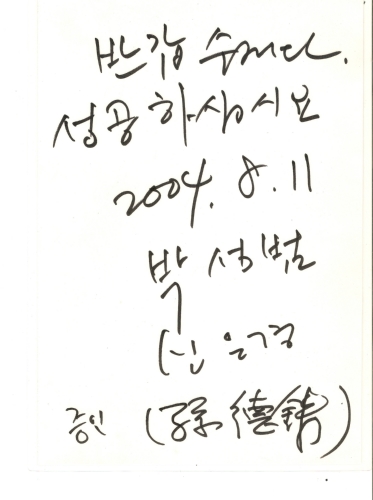 반갑습니다.
성공하십시요
2004. 8. 11
박성범
신은경
증인 (孫德